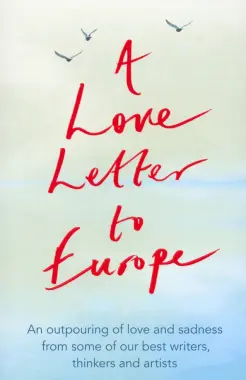 A
Love
Letter
to
Europe
An outpouring of love and sadness
from some of our best writers,
thinkers and artists